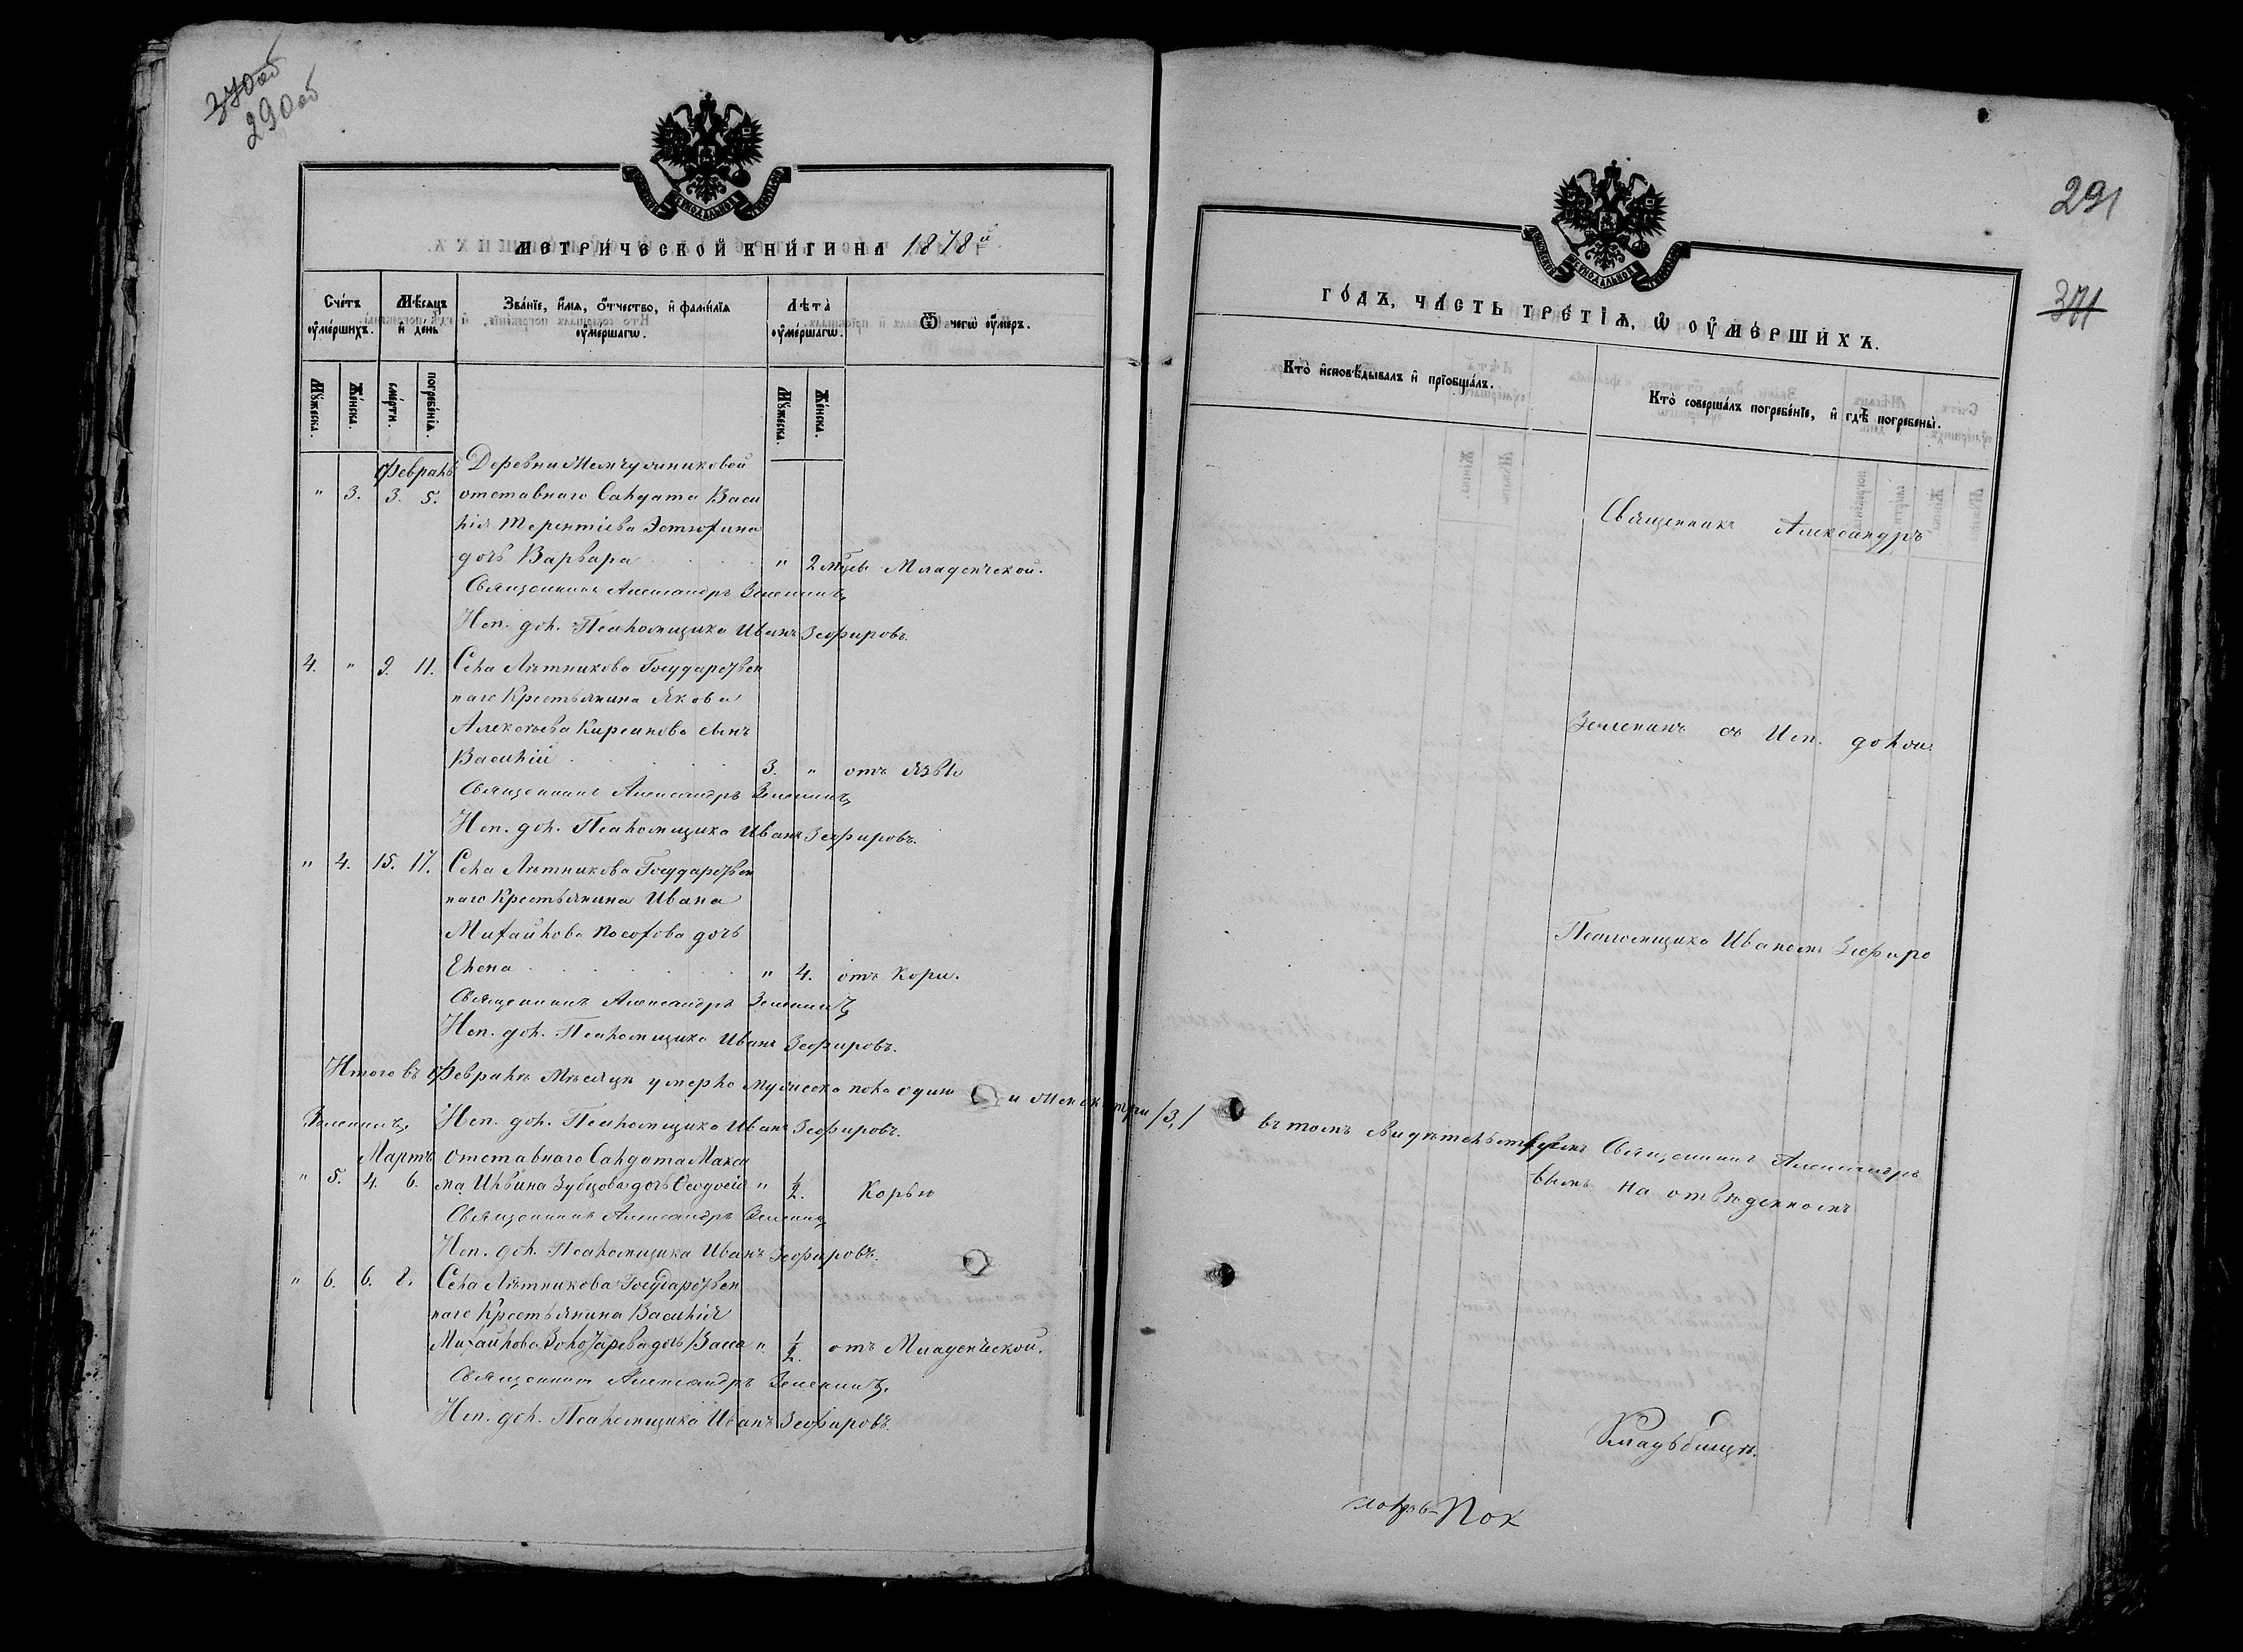 370об
290об
МЕТРИЧЕСКОЙ КНИГИ НА 1878й
Счетъ умершихъ.
Мѣсяцъ и день
Званіе, имя, отчество, и фамилія умершагѡ.
Лѣта умершагѡ.
Ѿ чегѡ умеръ.
Мужеска.
Женска.
смерти.
погребенія.
Мужеска.
Женска.
Февраль
Деревни
" 3. 3. 5. отставнаго Салдата Васи
лія Терентіева
дочь Варвара " 2 мѣсцы Младенческой.
Священникъ Александръ Зеленинъ
Исп. дол. Псаломщика Иванъ Зефировъ.
4. " 9. 11. Села Лѣтникова Государствен
наго Крестьянина Якова
Алексѣева Кирсанова сынъ
Василій 3. " отъ язвы
Священникъ Александръ Зеленинъ
Исп. дол. Псаломщика Иванъ Зефировъ.
" 4. 15. 17. Села Лѣтникова Государствен
наго Крестьянина Ивана
Михайлова Посохова дочь
Елена " 4. отъ кори.
Священникъ Александръ Зеленинъ
Исп. дол. Псаломщика Иванъ Зефировъ.
Итого въ Февралѣ Мѣсяцѣ умерло мужеска пола одинъ и женск три /3,/ въ томъ свидѣтельствуемъ Священникъ Александръ
Зеленинъ, Исп. дол. Псаломщика Иванъ Зефировъ.
Мартъ отставнаго Салдата Макси
" 5. 4. 6. ма Ильина Зубцова дочь Ѳеодосія " 1/2. Корью
Священникъ Александръ Зеленинъ
Исп. дол. Псаломщика Иванъ Зефировъ.
" 6. 6. 8. Села Лѣтникова Государствен
наго Крестьянина Василія
Михайлова Золотарева дочь Васса " 1/2. отъ Младенческой.
Священникъ Александръ Зеленинъ,
Исп. дол. Псаломщика Иванъ Зефировъ.
291
371
ГОДЪ, ЧАСТЬ ТРЕТІЯ, Ѡ УМЕРШИХЪ.
Кто исповѣдывалъ и пріобщалъ.
Кто совершалъ погребеніе, и гдѣ погребены.
Священникъ Александръ
Зеленинъ съ Исп. дол.
Псаломщика Иваномъ Зефиро
вымъ на отведенномъ
Кладбищѣ.